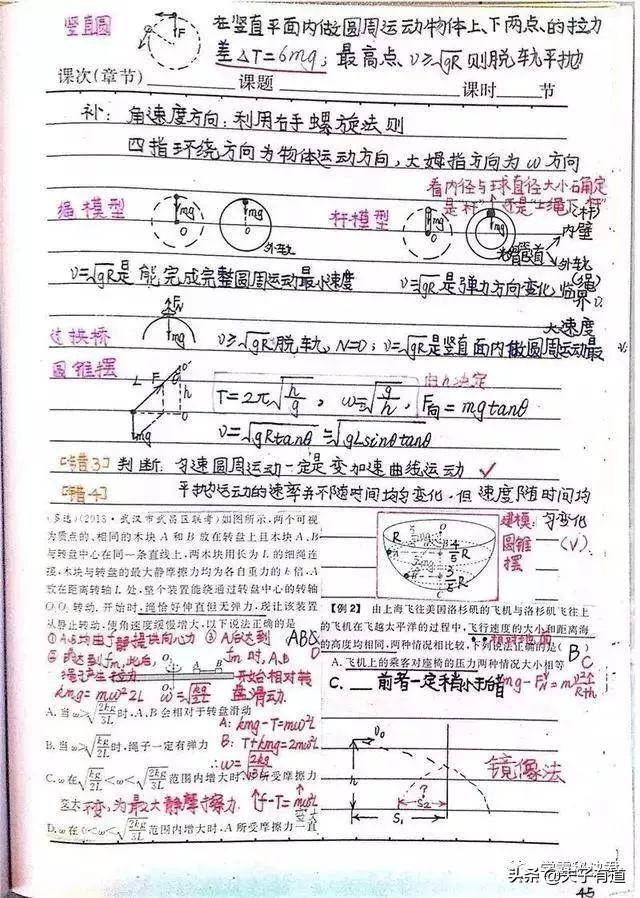 竖直圆 F 在竖直平面内做圆周运动物体上、下两点的拉力
差ΔT=6mg；最高点、v≥√gR 则脱轨平抛
课次(章节) 课题 课时 节
补：角速度方向：利用右手螺旋法则
四指环绕方向为物体运动方向，大姆指方向为ω方向
看内径与球直径大小确定
是"杆" 还是"上绳下杆"
绳模型 mg O mg 外轨 杆模型 mg O mg 光滑管道 (杆) 内壁
外轨 (绳)
v=√gR是能完成完整圆周运动最小速度 v=√gR是弹力方向变化临界v
过拱桥 FN mg v≥√gR脱轨，N=0；v=√gR是竖直面内做圆周运动最
大速度
圆锥摆 L F θ O' h O mg T=2π√h/g，ω=√g/h，F向=mgtanθ
由h决定
v=√gRtanθ=√gLsinθtanθ
[错3] 判断：匀速圆周运动一定是变加速曲线运动 ✓
[错4] 平抛运动的速率并不随时间均匀变化，但速度随时间均
匀变化
(√)
(多选)(2013·武汉市武昌区联考)如图所示，两个可视
为质点的、相同的木块A和B放在转盘上且木块A、B
与转盘中心在同一条直线上，两木块用长为L的细绳连
接，木块与转盘的最大静摩擦力均为各自重力的k倍，A
放在距离转轴L处，整个装置能绕通过转盘中心的转轴
O₁O₂转动，开始时，绳恰好伸直但无弹力，现让该装置
从静止转动，使角速度缓慢增大，以下说法正确的是
ABD
①A、B均由f静提供向心力 ③A后达到
②B达到fm，此后， fm时，A、B
绳子产生拉力 开始相对转
kmg=mω²2L ω=√kg/2L 盘滑动.
A.当ω>√2kg/3L时，A、B会相对于转盘滑动
A: kmg-T=mω²L
B.当ω>√kg/2L时，绳子一定有弹力
B: T+kmg=2mω²L
∴ω=√2kg/3L
C.ω在√kg/2L<ω<√2kg/3L范围内增大时，B所受摩擦力
变大 不变，为最大静摩擦力. ↑f-T=mω²L
变大
D.ω在0<ω<√2kg/3L范围内增大时，A所受摩擦力一直
R 4/5R 3/5R R
建模：
圆锥
摆
【例2】 由上海飞往美国洛杉矶的飞机与洛杉矶飞往上
的飞机在飞越太平洋的过程中，飞行速度的大小和距离海
相对地面
的高度均相同，两种情况相比较，下列说法正确的是(
B C
A.飞机上的乘客对座椅的压力两种情况大小相等
C. 前者一定稍小于后者 mg-FN=mv²/R+h
v₀ h S₁ ? S₂ 镜像法
头条@夫子有道
45